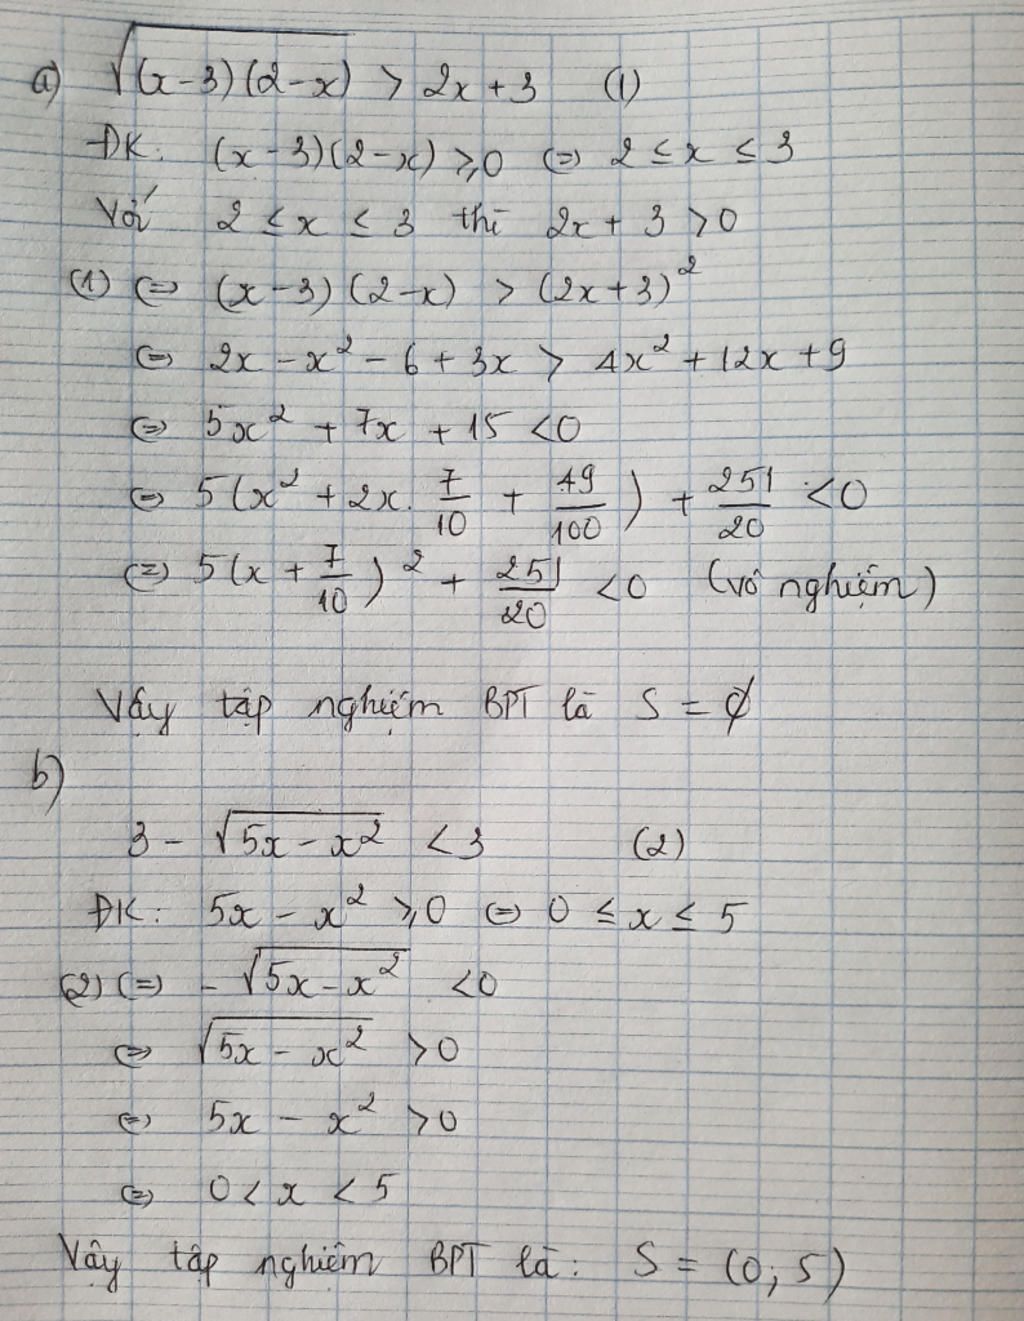 a) √(x-3)(2-x) > 2x+3 (1)
ĐK: (x-3)(2-x) ≥ 0 (=) 2 ≤ x ≤ 3
Với 2 ≤ x ≤ 3 thì 2x + 3 > 0
(1) (=) (x-3)(2-x) > (2x+3)²
(=) 2x - x² - 6 + 3x > 4x² + 12x + 9
(=) 5x² + 7x + 15 < 0
(=) 5(x² + 2x. 7/10 + 49/100) + 251/20 < 0
(=) 5(x + 7/10)² + 251/20 < 0 (vô nghiệm)
Vậy tập nghiệm BPT là S = ∅
b)
3 - √5x - x² < 3 (2)
ĐK: 5x - x² ≥ 0 (=) 0 ≤ x ≤ 5
(2) (=) - √5x - x² < 0
(=) √5x - x² > 0
(=) 5x - x² > 0
(=) 0 < x < 5
Vậy tập nghiệm BPT là: S = (0; 5)